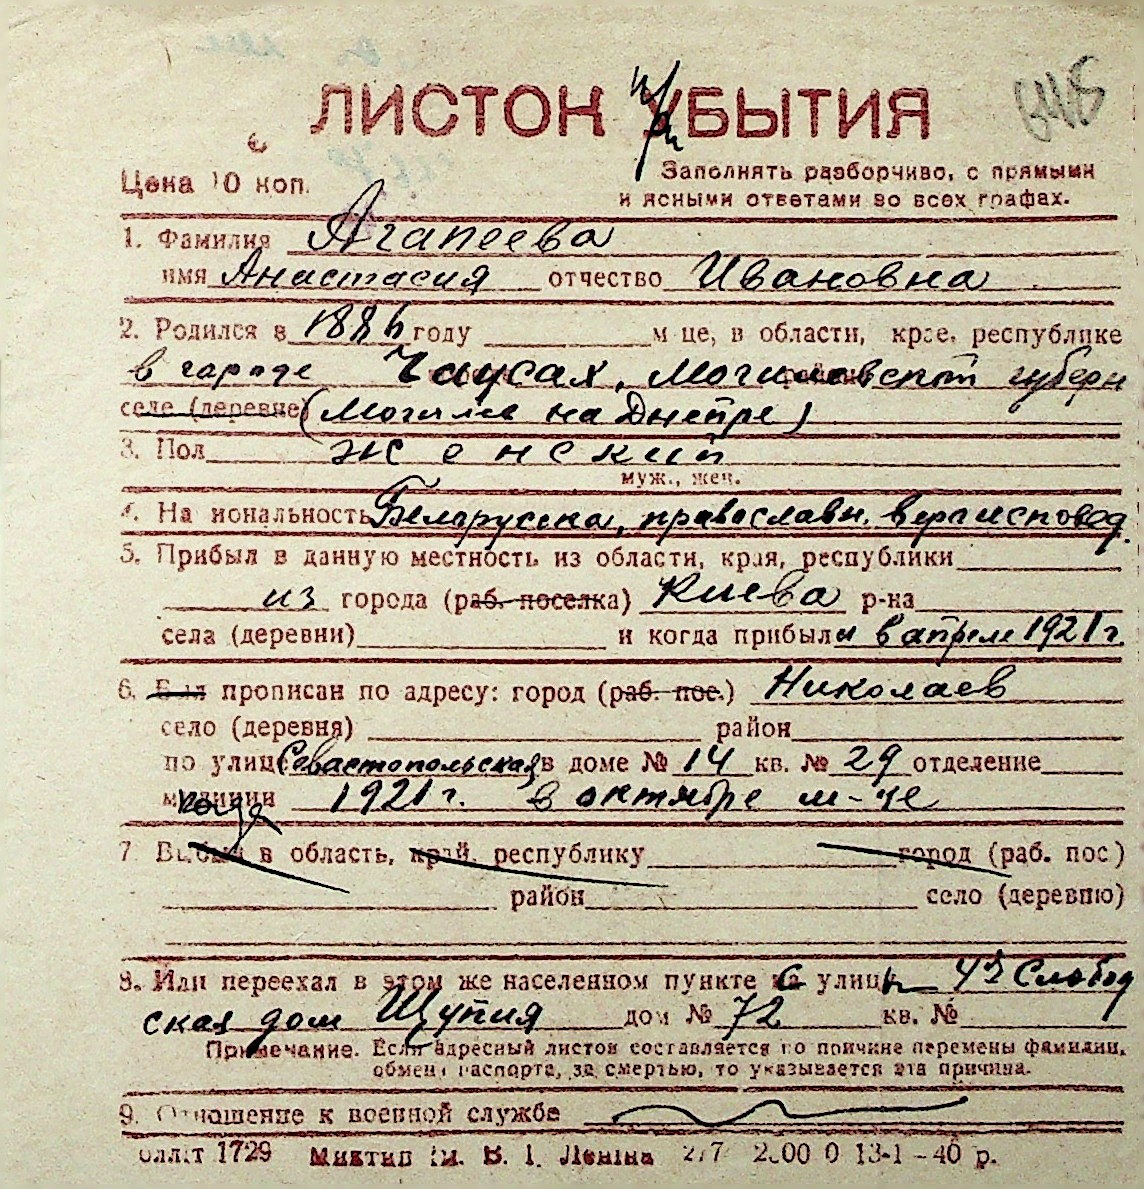 ЛИСТОК УБЫТИЯ
при
6415
Цена 10 коп.
Заполнять разборчиво, с прямыми
и ясными ответами во всех графах.
1. Фамилия Агапеева
имя Анастасия отчество Ивановна
2. Родился в 1886 году м-це, в области, крае, республике
в городе Чаусах, Могилевской губерн
селе (деревне) (Могилев на Днепре)
3. Пол женский
муж., жен.
4. Национальность Беларусска, православн. вероисповед.
5. Прибыл в данную местность из области, края, республики
из города (раб. поселка) Киева р-на
села (деревни) и когда прибыл в апреле 1921 г.
6. Был прописан по адресу: город (раб. пос.) Николаев
село (деревня) район
по улице Севастопольская в доме № 14 кв. № 29 отделение
милиции когда 1921 г. в октябре м-це
7. Выбыл в область, край, республику город (раб. пос)
район село (деревню)
8. Или переехал в этом же населенном пункте на с улицы 4я Слобод
ская дом Щупия дом № 72 кв. №
Примечание. Если адресный листок составляется по причине перемены фамилии,
обмена паспорта, за смертью, то указывается эта причина.
9. Отношение к военной службе
1729 Миктип ім. В. І. Леніна 277 2000 0 13-1-40 р.